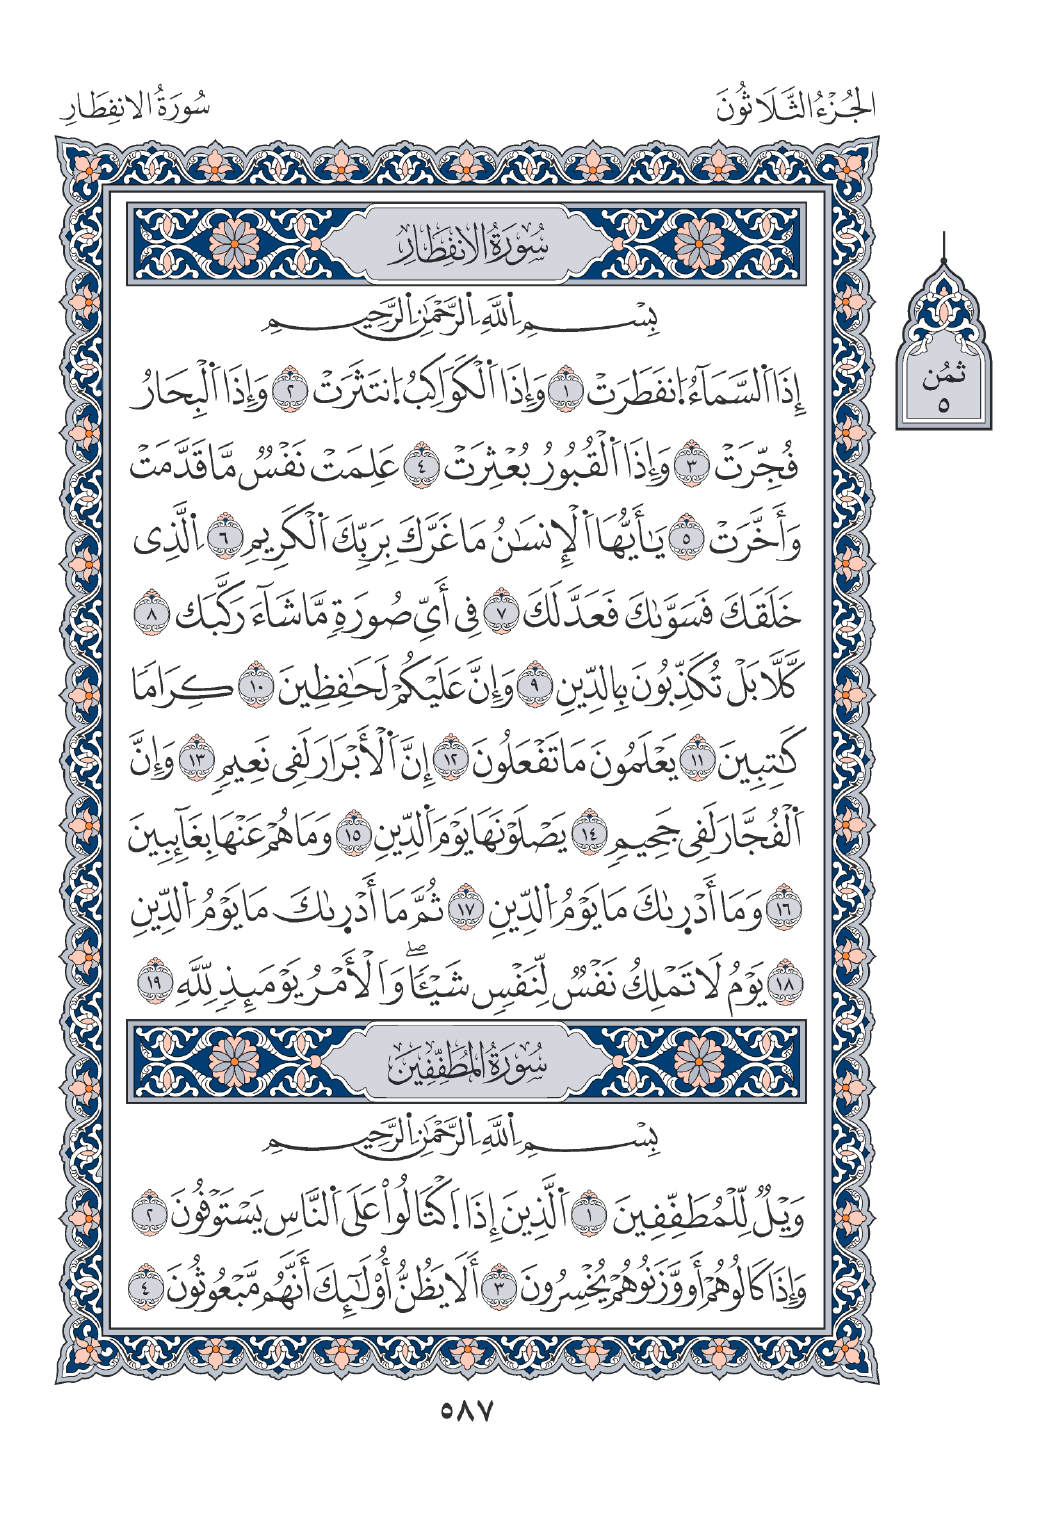 الجُزْءُ الثَّلَاثُونَ
سُورَةُ الانفِطَارِ
ثمُن
٥
سُورَةُ الانفِطَارِ
بِسْمِ اِ۬للَّهِ اِ۬لرَّحْمَٰنِ اِ۬لرَّحِيمِ
إِذَا اَ۬لسَّمَآءُ اُ۪نفَطَرَتْ ١ وَإِذَا اَ۬لْكَوَاكِبُ اُ۪نتَثَرَتْ ٢ وَإِذَا اَ۬لْبِحَارُ
فُجِّرَتْ ٣ وَإِذَا اَ۬لْقُبُورُ بُعْثِرَتْ ٤ عَلِمَتْ نَفْسٌ مَّا قَدَّمَتْ
وَأَخَّرَتْ ٥ يَـٰأَيُّهَا اَ۬لْإِنسَـٰنُ مَا غَرَّكَ بِرَبِّكَ اَ۬لْكَرِيمِ ٦ اِ۬لَّذِى
خَلَقَكَ فَسَوَّىٰكَ فَعَدَّلَكَ ٧ فِى أَىِّ صُورَةٍ مَّا شَآءَ رَكَّبَك ٨
كَّلَّا بَلْ تُكَذِّبُونَ بِالدِّينِ ٩ وَإِنَّ عَلَيْكُمْ لَحَـٰفِظِينَ ١٠ كِرَامًا
كَـٰتِبِينَ ١١ يَعْلَمُونَ مَا تَفْعَلُونَ ١٢ إِنَّ اَ۬لْأَبْرَارَ لَفِى نَعِيمٍ ١٣ وَإِنَّ
اَ۬لْفُجَّارَ لَفِى جَحِيمٍ ١٤ يَصْلَوْنَهَا يَوْمَ اَ۬لدِّينِ ١٥ وَمَا هُمْ عَنْهَا بِغَآئِبِينَ
١٦ وَمَا أَدْرٜىٰكَ مَا يَوْمُ اُ۬لدِّينِ ١٧ ثُمَّ مَا أَدْرٜىٰكَ مَا يَوْمُ اُ۬لدِّينِ
١٨ يَوْمُ لَا تَمْلِكُ نَفْسٌ لِّنَفْسٍ شَيْـًٔاۖ وَاَ۬لْأَمْرُ يَوْمَئِذٍ لِلَّهِ ١٩
سُورَةُ المُطَفِّفِينَ
بِسْمِ اِ۬للَّهِ اِ۬لرَّحْمَٰنِ اِ۬لرَّحِيمِ
وَيْلٌ لِّلْمُطَفِّفِينَ ١ اَ۬لَّذِينَ إِذَا اَ۪كْتَالُوا۟ عَلَى اَ۬لنَّاسِ يَسْتَوْفُونَ ٢
وَإِذَا كَالُوهُمْ أَو وَّزَنُوهُمْ يُخْسِرُونَ ٣ أَلَا يَظُنُّ أُو۟لَـٰٓئِكَ أَنَّهُم مَّبْعُوثُونَ ٤
٥٨٧